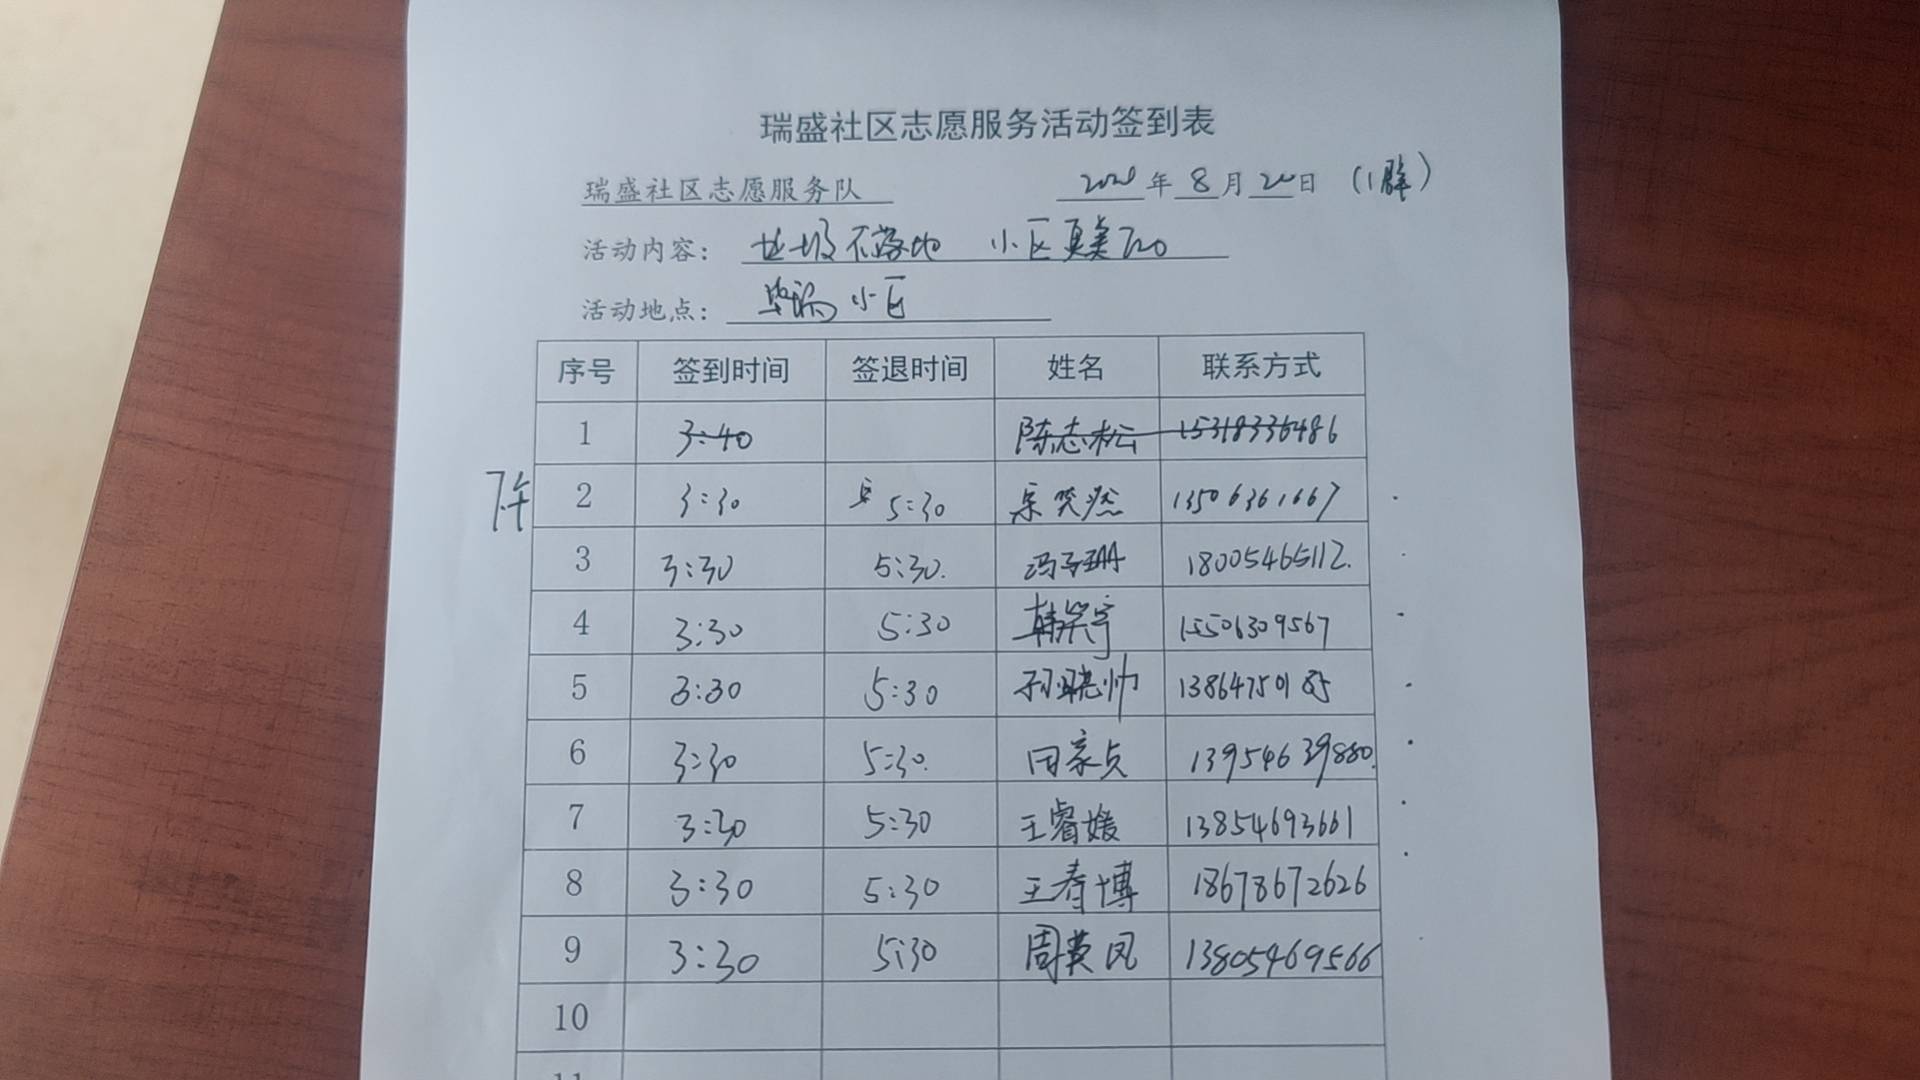 瑞盛社区志愿服务活动签到表
瑞盛社区志愿服务队 年 8 月 20 日 (1群)
活动内容: 垃圾不落地 小区更美丽
活动地点: 小区
序号 签到时间 签退时间 姓名 联系方式
1 3:40 陈志松 15318336486
下午
2 3:30 5:30 13506361667
3 3:30 5:30. 冯子珊 18005465112.
4 3:30 5:30 韩笑宇 15506309567
5 3:30 5:30 孙晓帅 13864750185
6 3:30 5:30. 田家贞 13954639880.
7 3:30 5:30 王睿媛 13854693661
8 3:30 5:30 王春博 18678672626
9 3:30 5:30 周英凤 13805469566
10
11